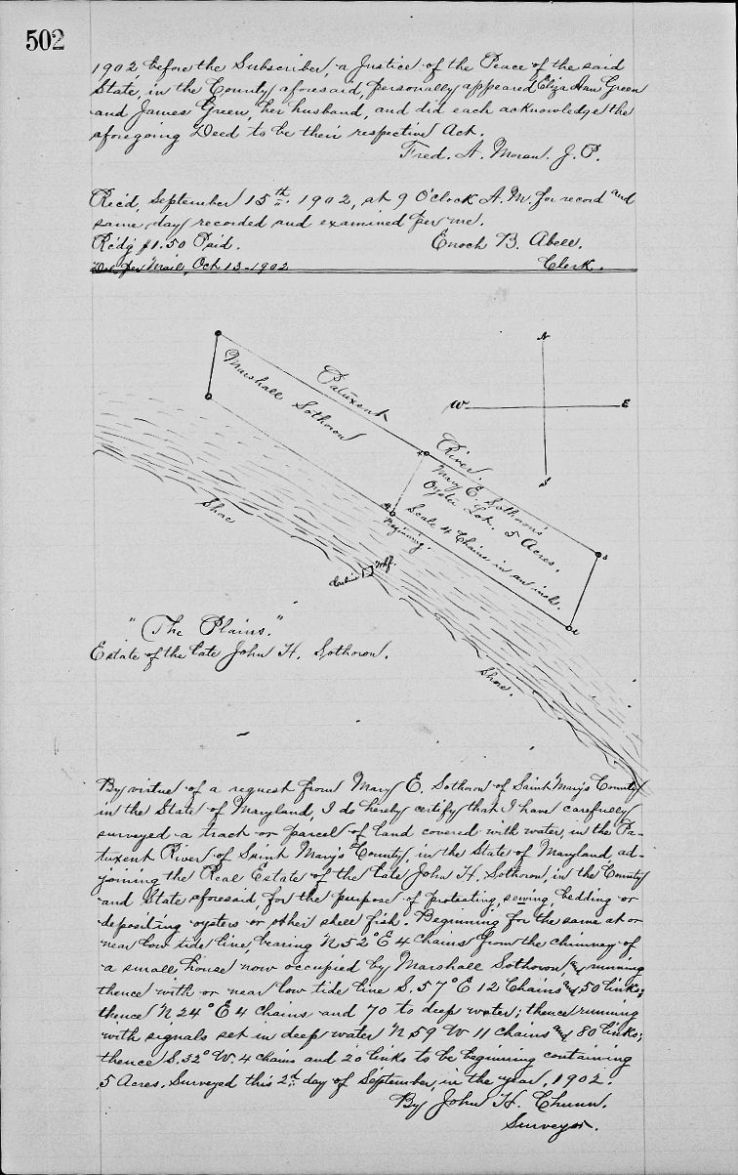 502
1902, before the Subscriber, a Justice of the Peace of the said
State, in the County aforesaid, personally appeared Eliza Ann Green
and James Green, her husband, and did each acknowledge the
aforegoing Deed to be their respective Act.
Fred. A. Moran. J. P.
Rec'd, September 15th 1902, at 9 O'clock A.M. for record and
same day recorded and examined per me.
Rcdg $1.50 Paid.
Enoch B. Abell.
Del per Mail, Oct 13. 1902
Clerk.
N
W
E
S
Patuxent
River.
Marshall Sothoron
Mary E. Sothoron's
Oyster Lot. 5 Acres.
Scale 4 Chains in an inch.
Beginning.
Shore
Whf.
"The Plains."
Estate of the late John H. Sothoron.
Shore.
By virtue of a request from Mary E. Sothoron of Saint Mary's County
in the State of Maryland, I do hereby certify that I have carefully
surveyed a tract or parcel of land covered with water, in the Pa-
tuxent River of Saint Mary's County, in the State of Maryland, ad-
joining the Real Estate of the late John H. Sothoron, in the County
and State aforesaid for the purpose of protesting, sowing, bedding or
depositing oysters or other shell fish. Beginning for the same at or
near low tide line, bearing N 52° E 4 chains from the chimney of
a small house now occupied by Marshall Sothoron, and running
thence with or near low tide line S. 57° E 12 Chains and 50 links;
thence N. 24° E 4 chains and 70 to deep water; thence running
with signals set in deep water N 59 W 11 chains and 80 links;
thence S. 32° W. 4 chains and 20 links to be beginning containing
5 Acres. Surveyed this 2nd day of September, in the year, 1902.
By John H. Chunn.
Surveyor.